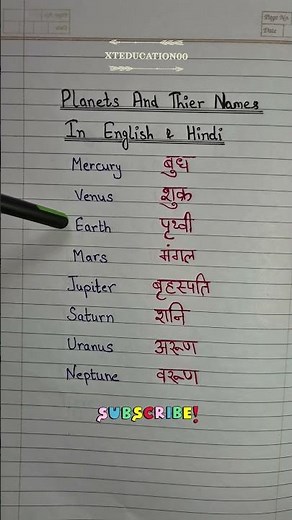 Page No.
Date
XTEDUCATION00
Planets And Thier Names
In English & Hindi
Mercury बुध
Venus शुक्र
Earth पृथ्वी
Mars मंगल
Jupiter बृहस्पति
Saturn शनि
Uranus अरूण
Neptune वरूण
SUBSCRIBE!